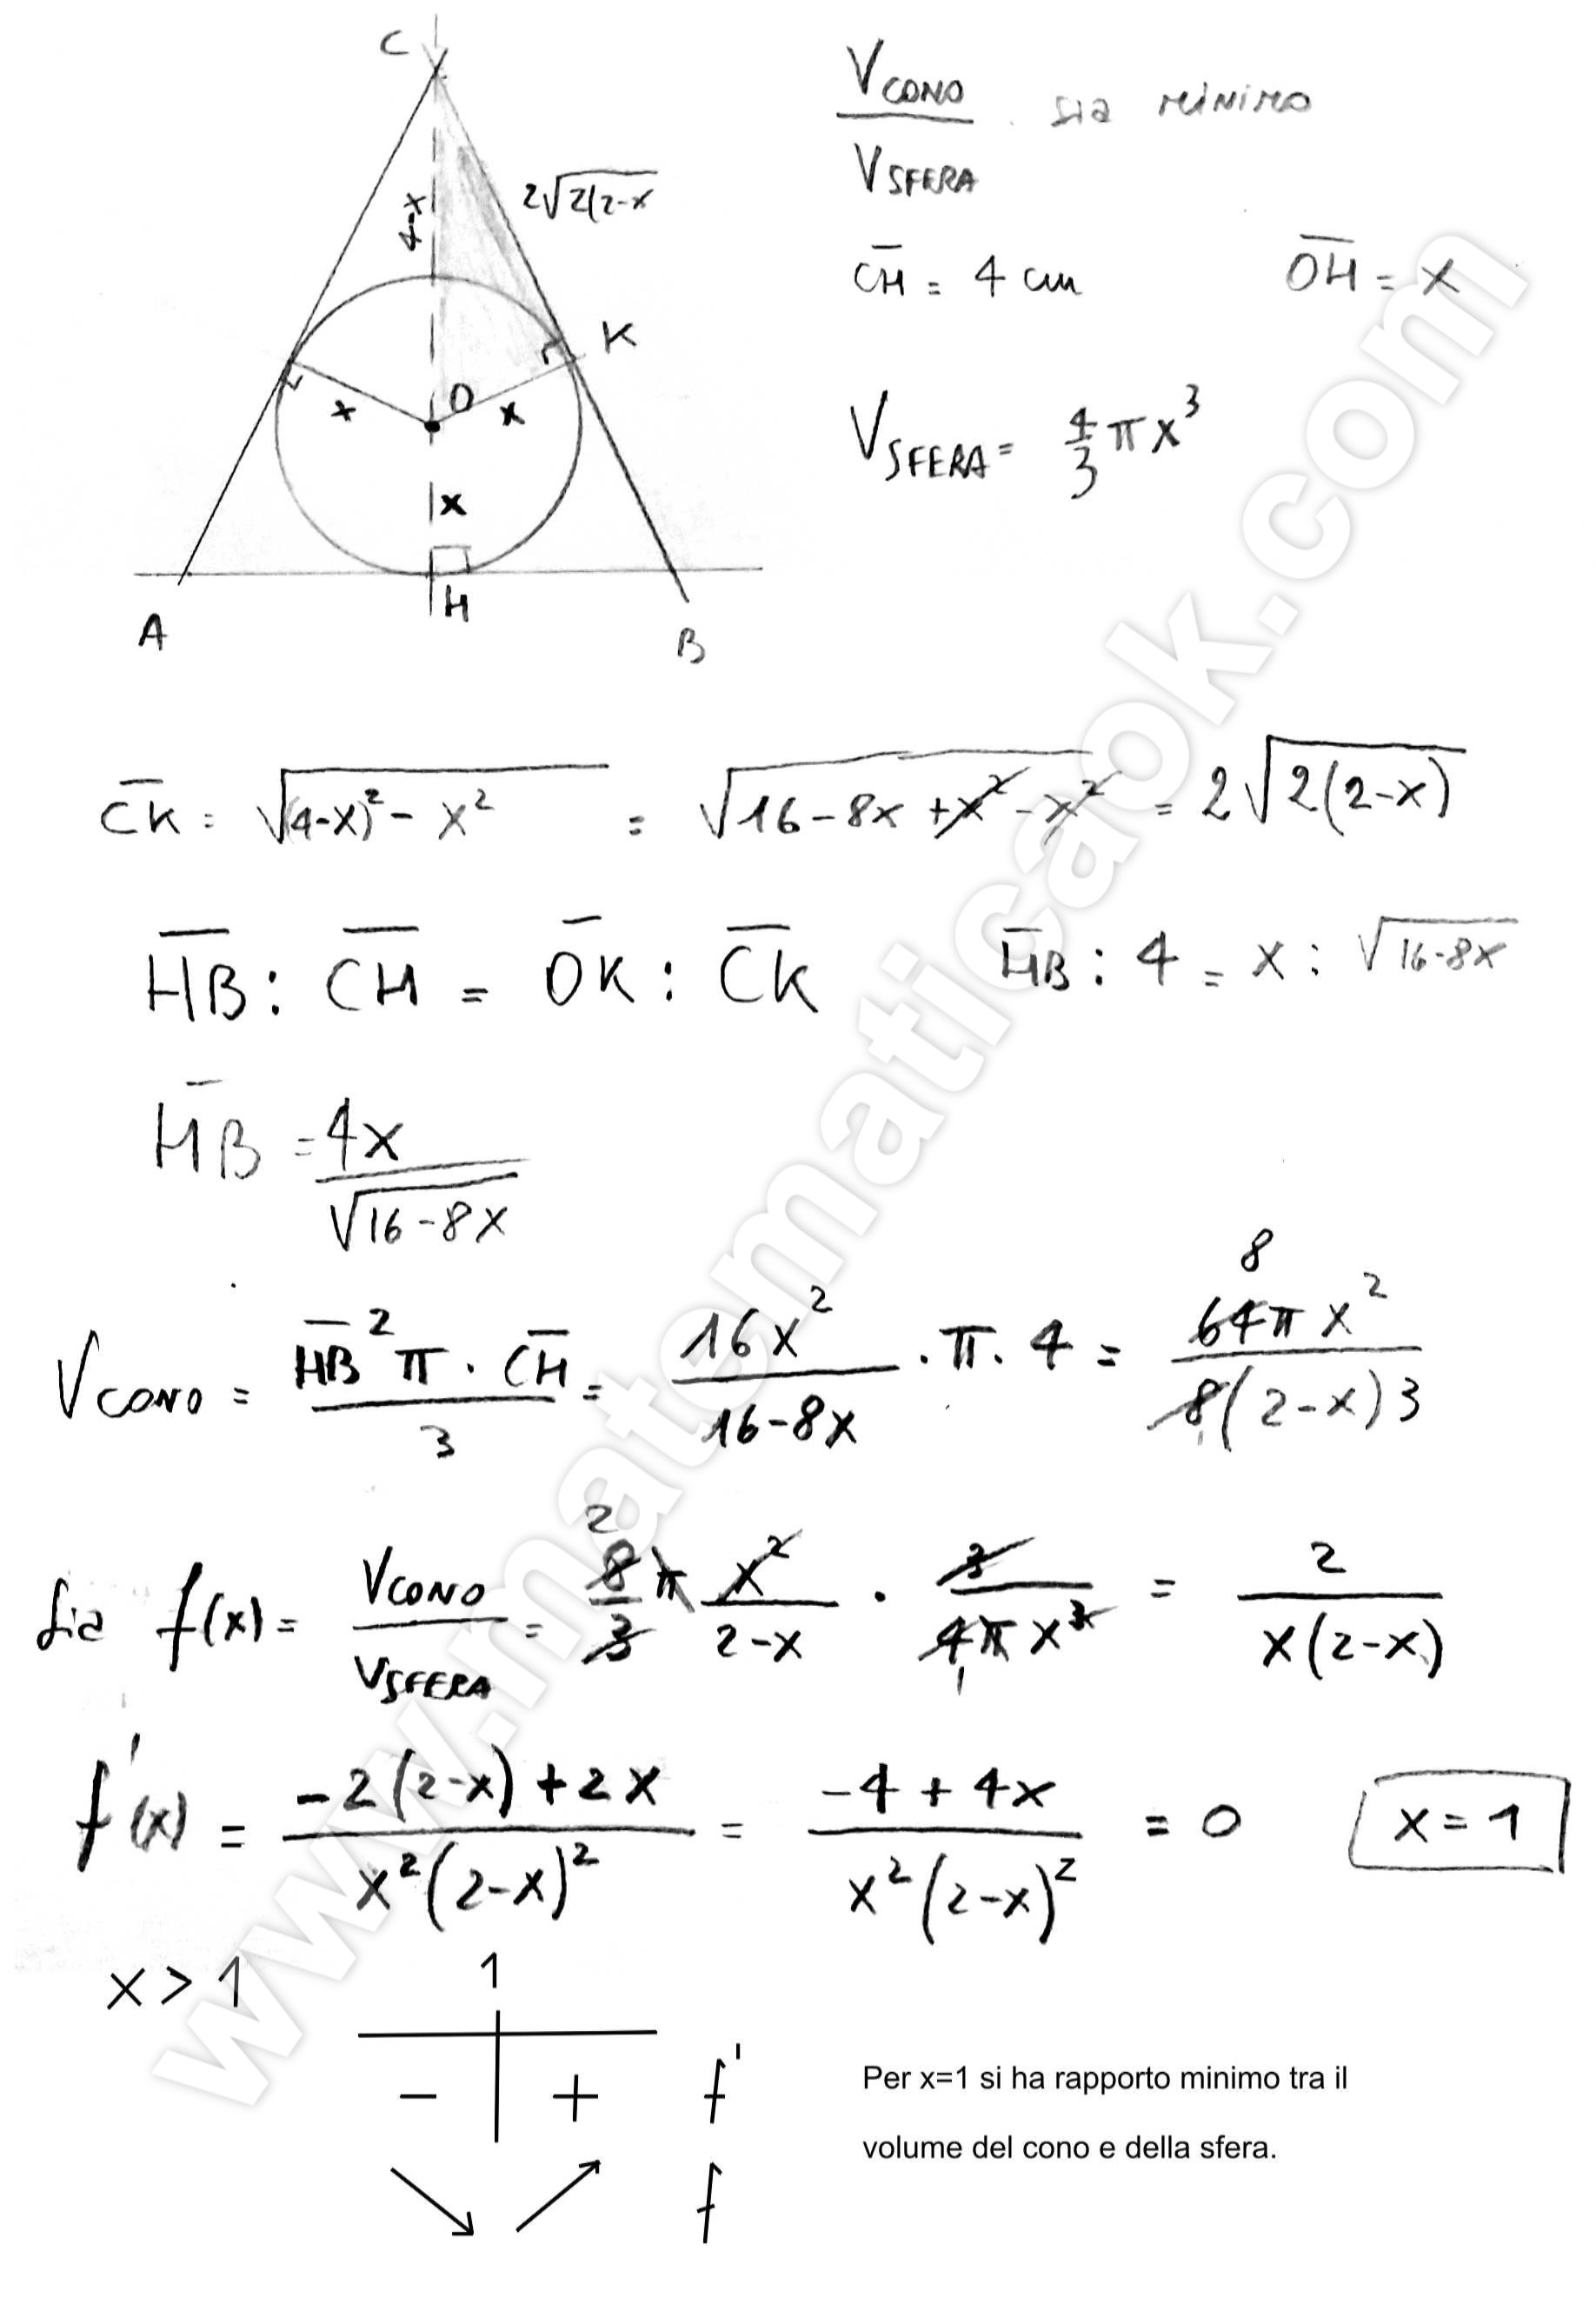 C
V CONO / V SFERA sia minimo
4-x
2√2(2-x
CH = 4 cm
OH = x
K
O
x
x
V SFERA = 4/3 π x³
x
H
A
B
CK = √(4-x)² - x² = √16-8x+x²-x² = 2√2(2-x)
HB : CH = OK : CK
HB : 4 = x : √16-8x
HB = 4x / √16-8x
8
V CONO = HB² π · CH / 3 = 16x² / 16-8x · π · 4 = 64πx² / 8(2-x)3
1
2
Sia f(x) = V CONO / V SFERA = 8/3 π x² / 2-x · 3 / 4πx³ = 2 / x(2-x)
1
f'(x) = -2(2-x)+2x / x²(2-x)² = -4+4x / x²(2-x)² = 0
x=1
x > 1
1
- + f'
f
Per x=1 si ha rapporto minimo tra il
volume del cono e della sfera.
www.matematicaok.com